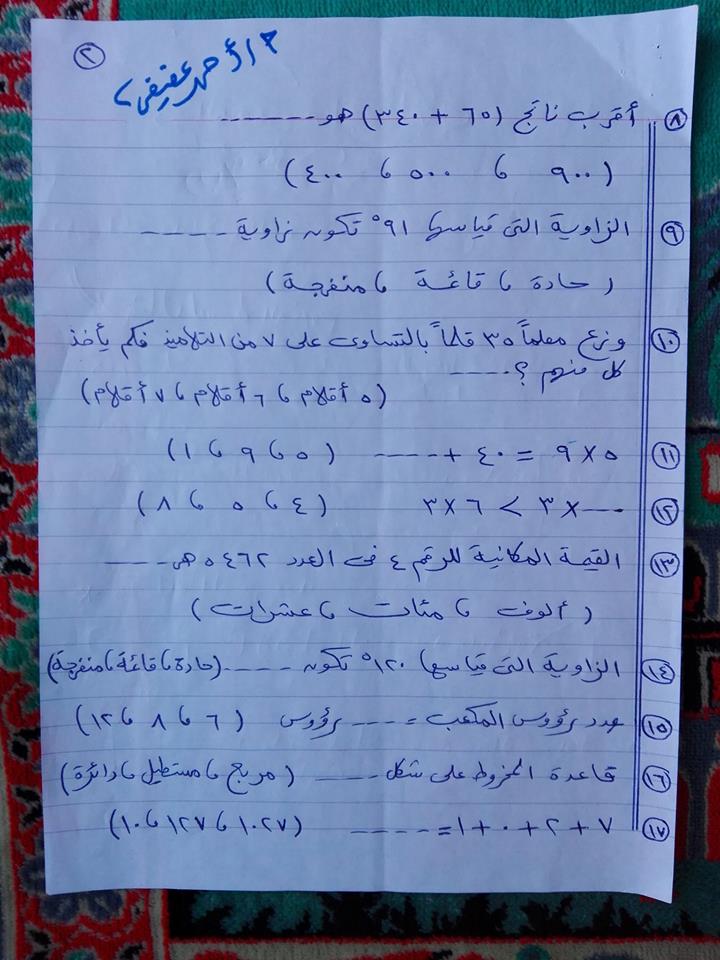 ٢
م / أحمد عفيفى
٨ أقرب ناتج (٦٥ + ٣٤٠) هو -----
(٩٠٠ ، ٥٠٠ ، ٤٠٠)
٩ الزاوية التى قياسها ٩١° تكون زاوية -----
(حادة ، قائمة ، منفرجة)
١٠ وزع معلماً ٣٥ قلماً بالتساوى على ٧ من التلاميذ فكم يأخذ
كل منهم ؟ -----
(٥ أقلام ، ٦ أقلام ، ٧ أقلام)
١١ ٥ × ٩ = ٤٠ + ----- (٥ ، ٩ ، ١)
١٢ ---- × ٣ > ٦ × ٣ (٤ ، ٥ ، ٨)
١٣ القيمة المكانية للرقم ٤ فى العدد ٥٤٦٢ هى -----
(ألوف ، مئات ، عشرات)
١٤ الزاوية التى قياسها ١٢٠° تكون ----- (حادة ، قائمة ، منفرجة)
١٥ عدد رؤوس المكعب = ----- رؤوس (٦ ، ٨ ، ١٢)
١٦ قاعدة المخروط على شكل ----- (مربع ، مستطيل ، دائرة)
١٧ ٧ + ٢ + ٠ + ١ = ----- (١٠٢٧ ، ١٢٧ ، ١٠)